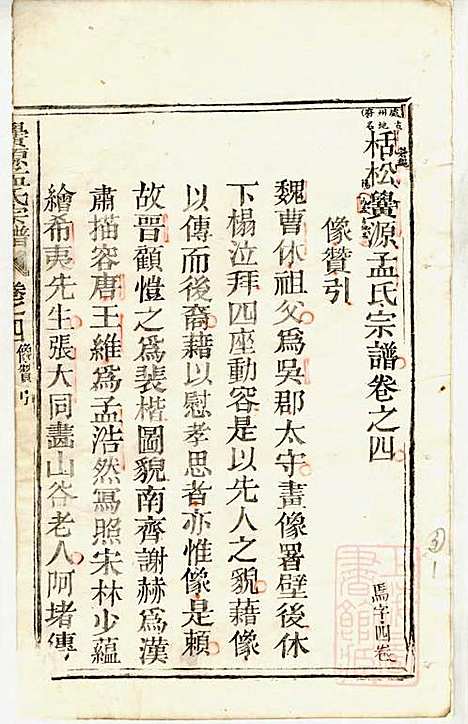 栝松黌源孟氏宗譜卷之四
像贊引
魏曹休祖父爲吳郡太守畫像署壁後休
下榻泣拜四座動容是以先人之貌藉像
以傳而後裔藉以慰孝思者亦惟像是賴
故晉顧愷之爲裴楷圖貌南齊謝赫爲漢
肅描容唐王維爲孟浩然寫照宋林少蘊
繪希夷先生張大同畫山谷老人阿堵傳
黌源孟氏宗譜
卷之四
像贊引
馬字四卷